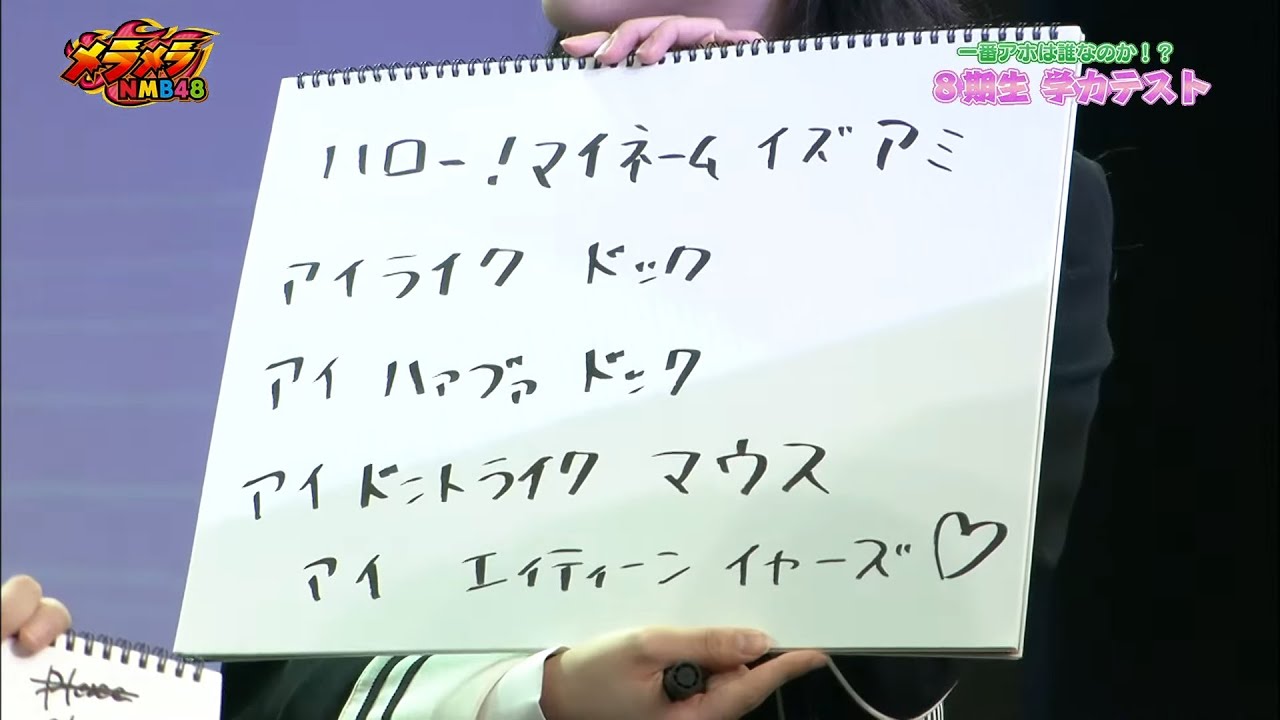 メラメラ
NMB48
一番アホは誰なのか！？
8期生 学力テスト
ハロー！マイネーム イズ アミ
アイライク ドック
アイ ハァブァ ドック
アイ ドントライク マウス
アイ エィティーン イヤーズ♡